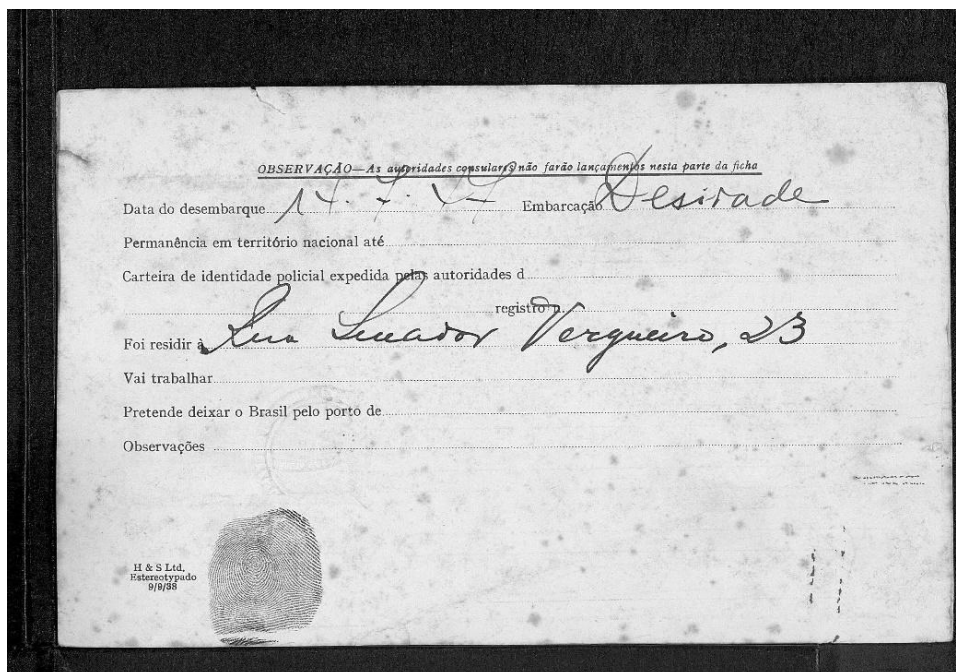 OBSERVAÇÃO—As autoridades consulares não farão lançamentos nesta parte da ficha
Data do desembarque 14. 7. 47 Embarcação Desirade
Permanência em território nacional até
Carteira de identidade policial expedida pelas autoridades d
registro n.
Foi residir à Rua Senador Vergueiro, 23
Vai trabalhar
Pretende deixar o Brasil pelo porto de
Observações
H & S Ltd.
Estereotypado
9/9/38